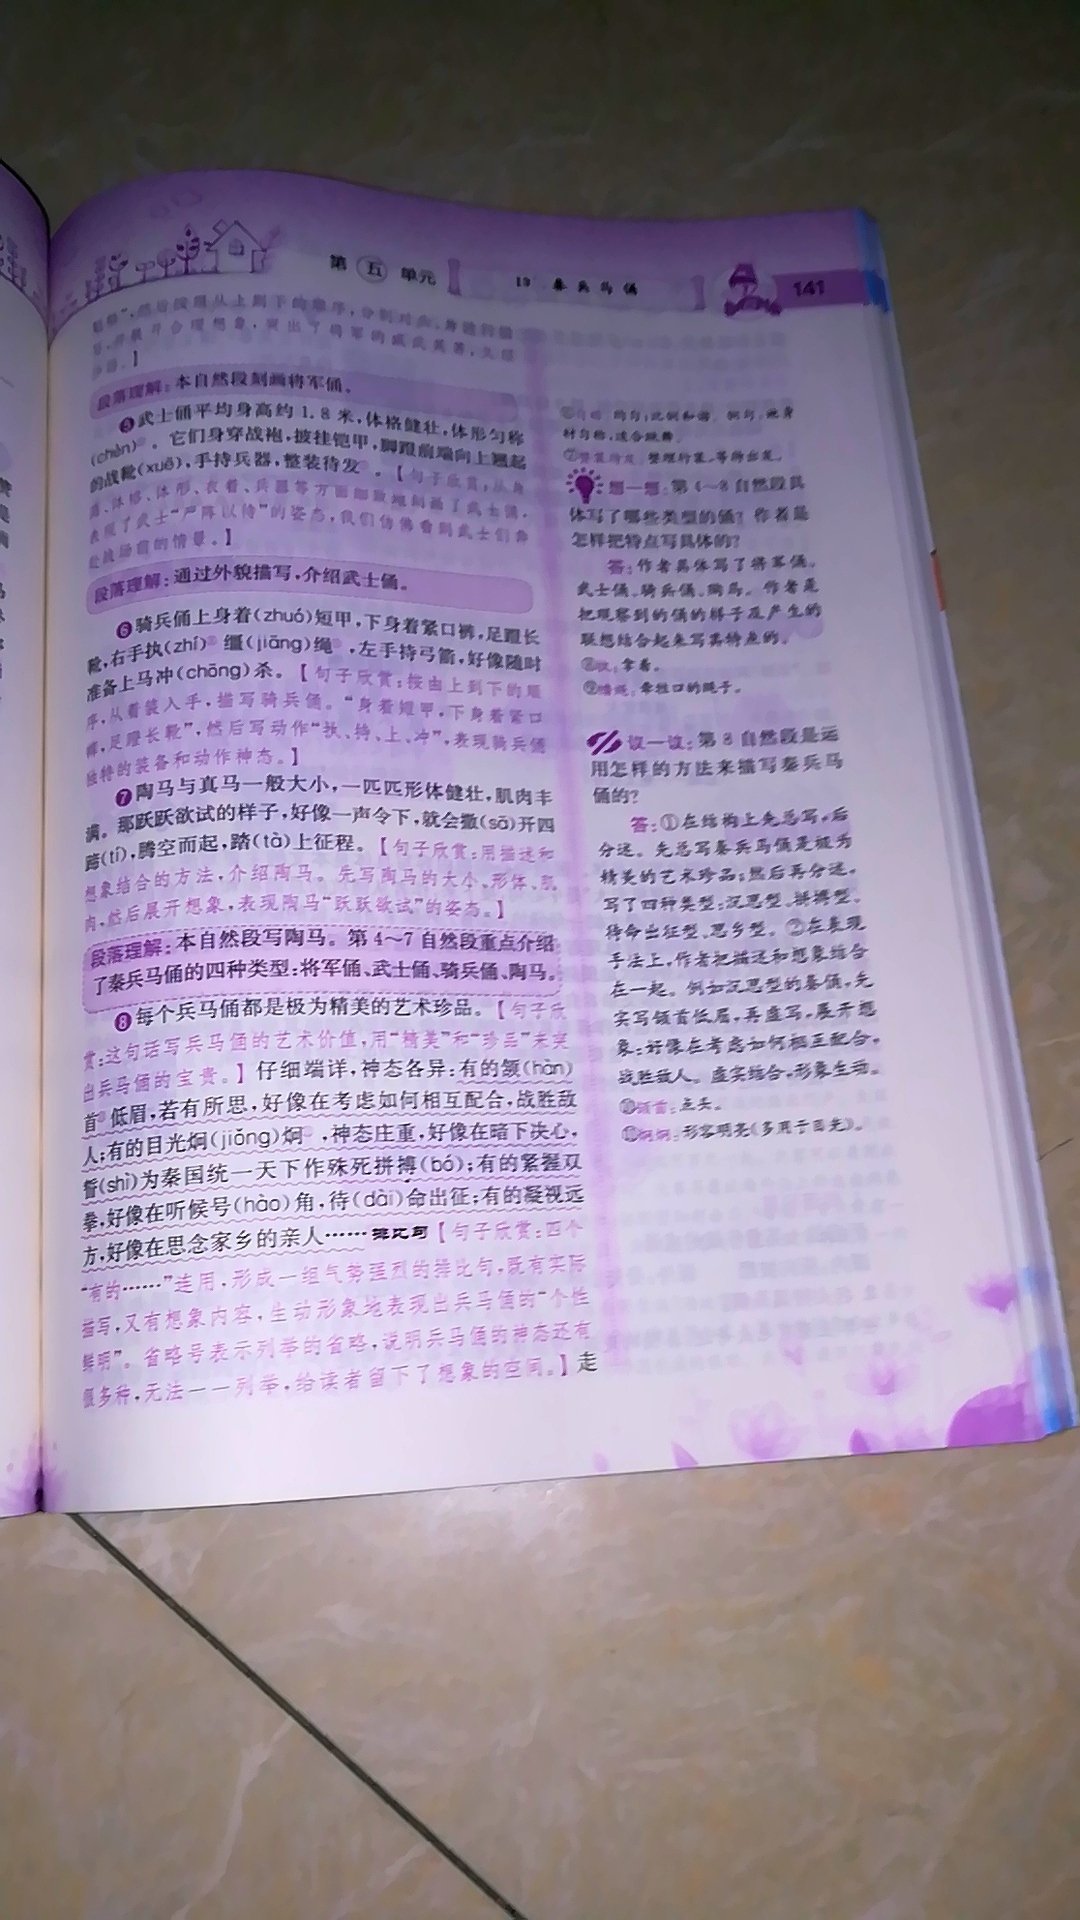 第五单元
19 秦兵马俑
141
段落理解:本自然段刻画将军俑。
❺武士俑平均身高约1.8米,体格健壮,体形匀称
(chèn)。它们身穿战袍,披挂铠甲,脚蹬前端向上翘起
的战靴(xuē),手持兵器,整装待发。【句子欣赏:从身
高、体格、体形、衣着、兵器等方面细致地刻画了武士俑,
表现了武士“严阵以待”的姿态,我们仿佛看到武士们奔
赴战场前的情景。】
段落理解:通过外貌描写,介绍武士俑。
❻骑兵俑上身着(zhuó)短甲,下身着紧口裤,足蹬长
靴,右手执(zhí)缰(jiāng)绳,左手持弓箭,好像随时
准备上马冲(chōng)杀。【句子欣赏:按由上到下的顺
序,从着装入手,描写骑兵俑。“身着短甲,下身着紧口
裤,足蹬长靴”,然后写动作“执、持、上、冲”,表现骑兵俑
独特的装备和动作神态。】
❼陶马与真马一般大小,一匹匹形体健壮,肌肉丰
满。那跃跃欲试的样子,好像一声令下,就会撒(sā)开四
蹄(tí),腾空而起,踏(tà)上征程。【句子欣赏:用描述和
想象结合的方法,介绍陶马。先写陶马的大小、形体、肌
肉,然后展开想象,表现陶马“跃跃欲试”的姿态。】
段落理解:本自然段写陶马。第4~7自然段重点介绍
了秦兵马俑的四种类型:将军俑、武士俑、骑兵俑、陶马。
❽每个兵马俑都是极为精美的艺术珍品。【句子欣
赏:这句话写兵马俑的艺术价值,用“精美”和“珍品”来突
出兵马俑的宝贵。】仔细端详,神态各异:有的颔(hàn)
首低眉,若有所思,好像在考虑如何相互配合,战胜敌
人;有的目光炯(jiǒng)炯,神态庄重,好像在暗下决心,
誓(shì)为秦国统一天下作殊死拼搏(bó);有的紧握双
拳,好像在听候号(hào)角,待(dài)命出征;有的凝视远
方,好像在思念家乡的亲人……排比句【句子欣赏:四个
“有的……”连用,形成一组气势强烈的排比句,既有实际
描写,又有想象内容,生动形象地表现出兵马俑的“个性
鲜明”。省略号表示列举的省略,说明兵马俑的神态还有
很多种,无法一一列举,给读者留下了想象的空间。】走
想一想:第4~8自然段具
体写了哪些类型的俑?作者是
怎样把特点写具体的?
答:作者具体写了将军俑、
武士俑、骑兵俑、陶马。作者是
把观察到的俑的样子及产生的
联想结合起来写其特点的。
⑧执:拿着。
⑨缰绳:牵牲口的绳子。
议一议:第8自然段是运
用怎样的方法来描写秦兵马
俑的?
答:①在结构上先总写,后
分述。先总写秦兵马俑是极为
精美的艺术珍品;然后再分述,
写了四种类型:沉思型、拼搏型、
待命出征型、思乡型。②在表现
手法上,作者把描述和想象结合
在一起。例如沉思型的秦俑,先
实写颔首低眉,再虚写,展开想
象:好像在考虑如何相互配合,
战胜敌人。虚实结合,形象生动。
⑩颔首:点头。
⑪炯炯:形容明亮(多用于目光)。